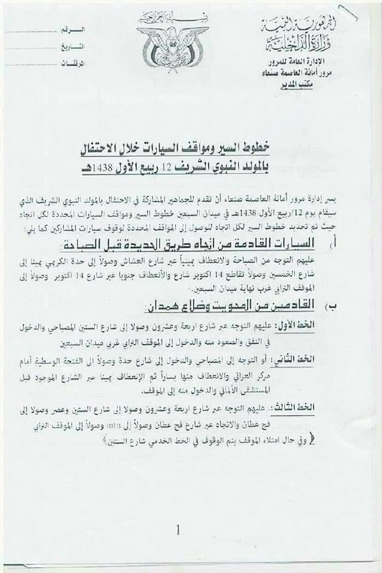 الجمهورية اليمنية
وزارة الداخلية
الإدارة العامة للمرور
مرور أمانة العاصمة صنعاء
مكتب المدير
الرقم
التاريخ
المرفقات
خطوط السير ومواقف السيارات خلال الاحتفال
بالمولد النبوي الشريف 12 ربيع الأول 1438هـ
يسر إدارة مرور أمانة العاصمة صنعاء أن تقدم للجماهير المشاركة في الاحتفال بالمولد النبوي الشريف الذي
سيقام يوم 12/ربيع الأول 1438هـ في ميدان السبعين خطوط السير ومواقف السيارات المحددة لكل اتجاه
حيث تم تحديد خطوط السير لكل اتجاه للوصول إلى المواقف المحددة لوقوف سيارات المشاركين كما يلي:
أ) السيارات القادمة من اتجاه طريق الحديدة قبل الصباحة:
عليهم التوجه من الصباحة والانعطاف يميناً عبر شارع العشاش وصولاً إلى حدة الكريمي يمينا إلى
شارع الخمسين وصولاً تقاطع 14 أكتوبر شارع والأنعطاف جنوبا عبر شارع 14 اكتوبر وصولاً إلى
الموقف الترابي غرب نهاية ميدان السبعين.
ب) القادمين من المحويت وضلاع همدان:
الخط الأول: عليهم التوجه عبر شارع اربعة وعشرون وصولا إلى شارع الستين المصباحي والدخول
في النفق والصعود منه والدخول إلى الموقف الترابي غربي ميدان السبعين.
الخط الثاني: أو التوجه إلى المصباحي والدخول إلى شارع حدة وصولاً إلى الفتحة الوسطية أمام
مركز العزاني والانعطاف منها يساراً ثم الإنعطاف يمينا عبر الشارع الموجود قبل
المستشفى الألماني والدخول منه إلى الموقف.
الخط الثالث: عليهم التوجه عبر شارع اربعة وعشرون وصولا إلى شارع الستين وعصر وصولا إلى
فج عطان والاتجاه عبر شارع فج عطان وصولاً إلى mtn وصولاً إلى الموقف الترابي
(وفي حال امتلاء الموقف يتم الوقوف في الخط الخدمي شارع الستين)
1